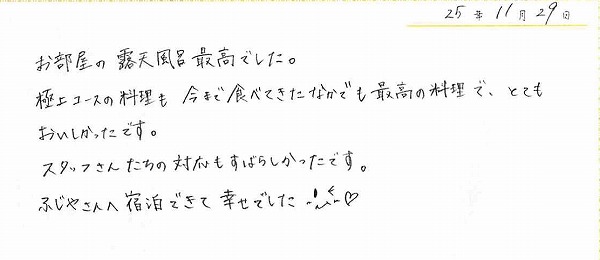 25年11月29日
お部屋の露天風呂最高でした。
極上コースの料理も今まで食べてきたなかでも最高の料理で、とても
おいしかったです。
スタッフさんたちの対応もすばらしかったです。
ふじやさんへ宿泊できて幸せでした♡